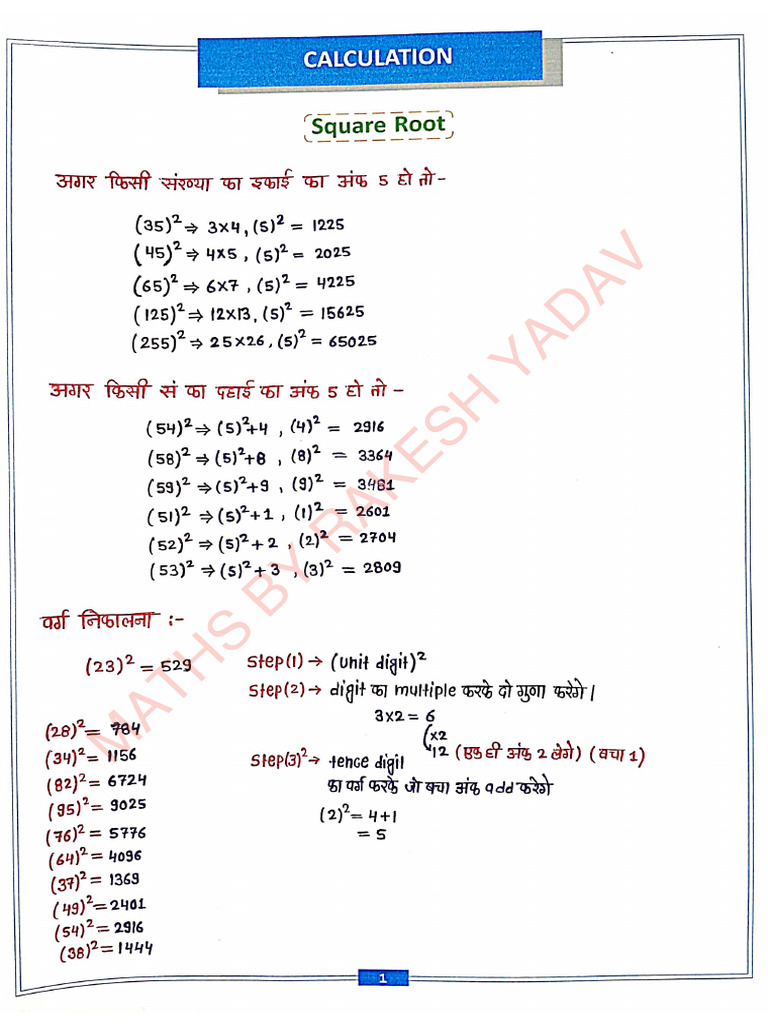 CALCULATION
Square Root
अगर किसी संख्या का इकाई का अंक 5 हो तो -
(35)² ⇒ 3×4, (5)² = 1225
(45)² ⇒ 4×5, (5)² = 2025
(65)² ⇒ 6×7, (5)² = 4225
(125)² ⇒ 12×13, (5)² = 15625
(255)² ⇒ 25×26, (5)² = 65025
अगर किसी सं का दहाई का अंक 5 हो तो -
(54)² ⇒ (5)²+4 , (4)² = 2916
(58)² ⇒ (5)²+8 , (8)² = 3364
(59)² ⇒ (5)²+9 , (9)² = 3481
(51)² ⇒ (5)²+1 , (1)² = 2601
(52)² ⇒ (5)²+2 , (2)² = 2704
(53)² ⇒ (5)²+3 , (3)² = 2809
वर्ग निकालना :-
(23)² = 529
Step(1) → (Unit digit)²
Step(2) → digit का multiple करके दो गुणा करेगे।
3×2 = 6
×2
12 (एक ही अंक 2 लेगे) (बचा 1)
Step(3)² → tence digil
का वर्ग करके जो बचा अंक add करेगे
(2)² = 4+1
= 5
(28)² = 784
(34)² = 1156
(82)² = 6724
(95)² = 9025
(76)² = 5776
(64)² = 4096
(37)² = 1369
(49)² = 2401
(54)² = 2916
(38)² = 1444
1
MATHS BY RAKESH YADAV